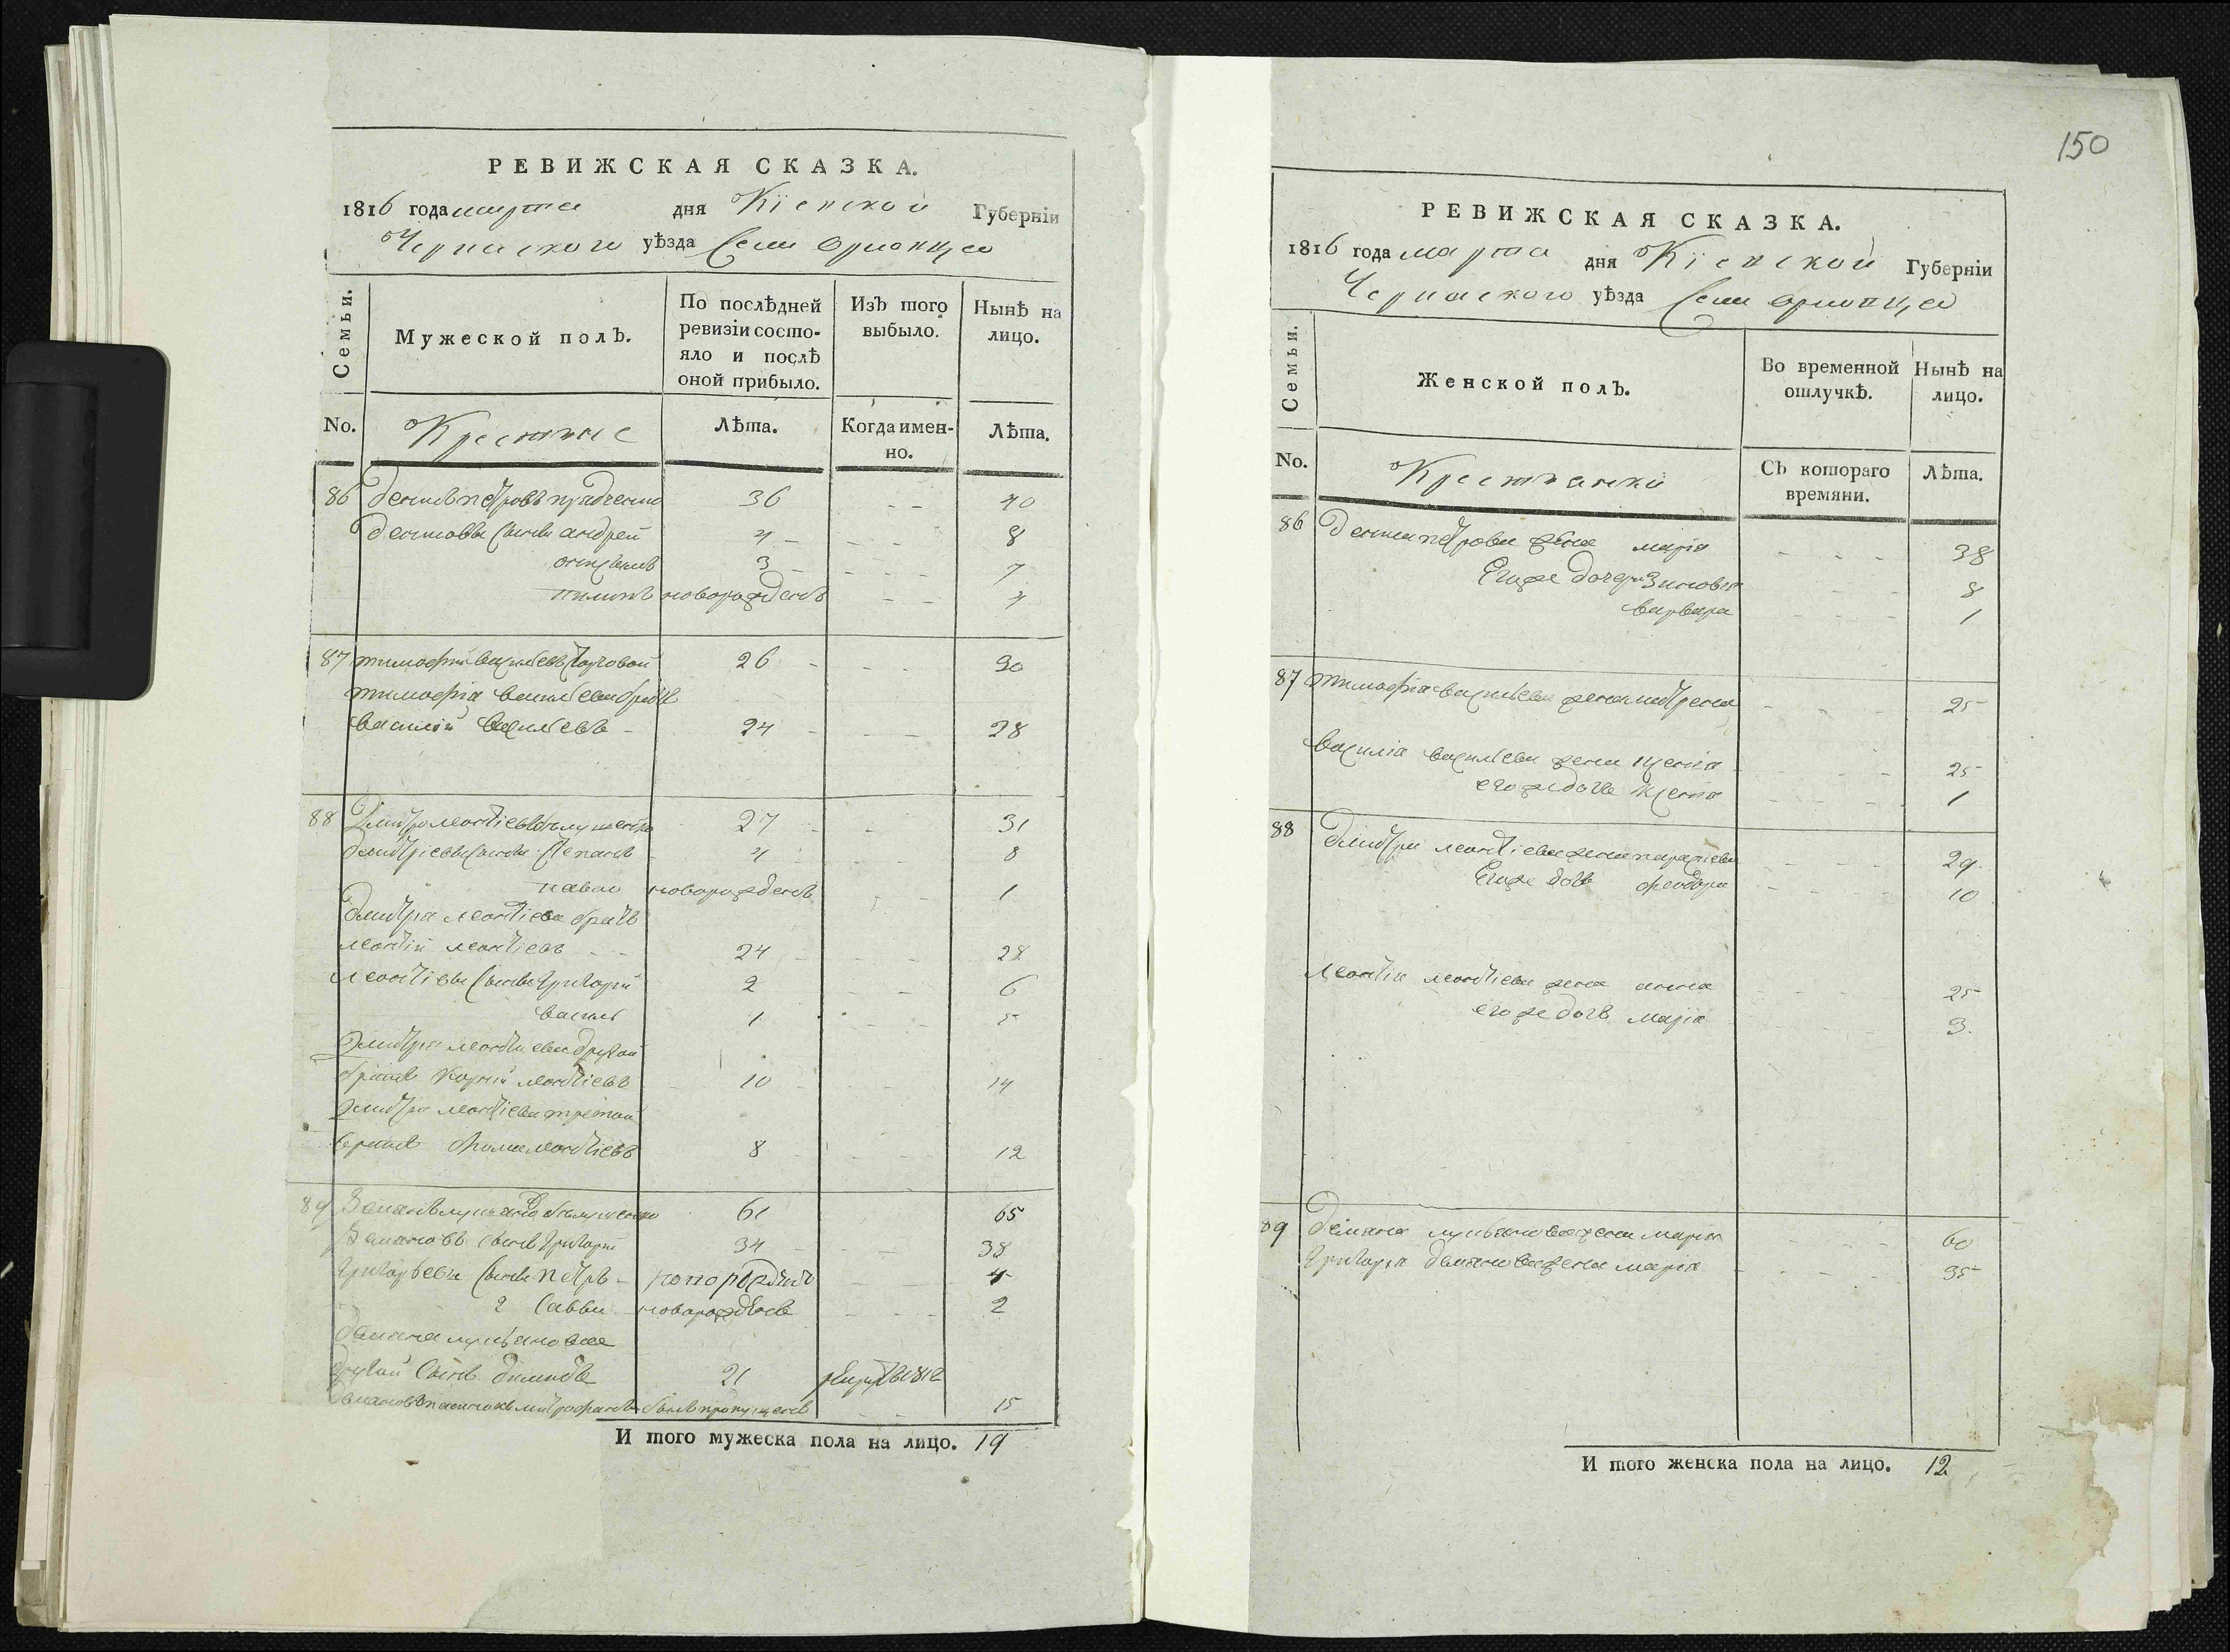 РЕВИЖСКАЯ СКАЗКА.
1816 года марта дня Кіевской Губерніи
Черкаского уѣзда
Семьи.
Мужеской полъ.
По послѣдней ревизіи состояло и послѣ оной прибыло.
Изъ того выбыло.
Нынѣ на лицо.
No.
Крестяне
Лѣта.
Когда именно.
Лѣта.
86 Денисъ петровъ 36 40
Денисовы сыны андрей 4 8
3 7
пилипъ новорожденъ 4
87 тимофей василевъ 26 30
тимофіа василева братъ
василій василевъ 24 28
88 Дмитро леонтіевъ 27 31
дмитріевы сыны Степанъ 4 8
павло новорожденъ 1
дмитра леонтіева братъ
леонтій леонтіевъ 24 28
леонтіевы сыны григорій 2 6
василь 1 5
дмитра леонтиева другой
братъ корній леонтіевъ 10 14
дмитра леонтіева третой
братъ фома леонтіевъ 8 12
89 Демянъ лукяновъ 61 65
Демяновъ сынъ григорій 34 38
григорьевы сыны петръ новорожденъ 4
2 Савва новорожденъ 2
демяна лукянова
другой сынъ 21 1812
пасинокъ митрофанъ былъ пропущенъ 15
И того мужеска пола на лицо. 19
150
РЕВИЖСКАЯ СКАЗКА.
1816 года марта дня Кіевской Губерніи
Черкаского уѣзда
Семьи.
Женской полъ.
Во временной отлучкѣ.
Нынѣ на лицо.
No.
Крестянки
Съ котораго времяни.
Лѣта.
86 Дениса петрова жена маріа 38
Егоже дочери Зиновія 8
варвара 1
87 тимофіа василева жена матрена 25
василіа василева жена 25
егоже дочь 1
88 дмитра леонтіева жена 29
Егоже дочь феодора 10
леонтіа леонтіева жена анна 25
егоже дочь маріа 3
89 демяна лукянова жена маріа 60
григоріа демянова жена маріа 35
И того женска пола на лицо. 12